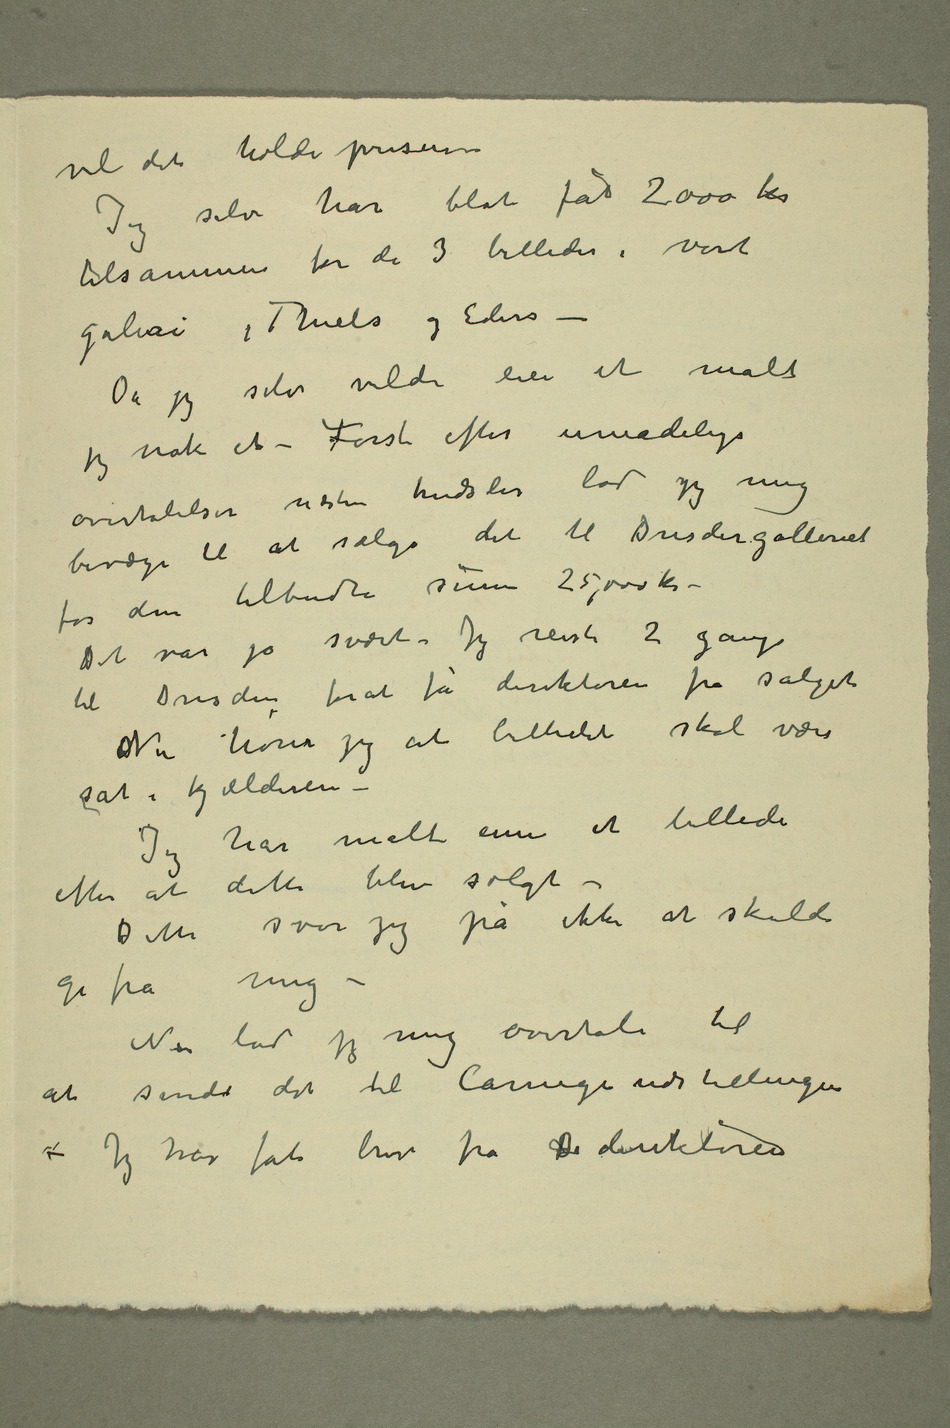 vil det holde prisen –
Jeg selv har blot fåt 2000 kr
tilsammen for de 3 billeder i vort
galleri, Thiels og Eders –
Da jeg selv vilde eie et malte
jeg nok et – Først efter umådelige
overtalelser næsten trudsler lod jeg mig
bevæge til at sælge det til Dresdergalleriet
for den tilbudte sum 25,000 kr –
Det var jo svært – Jeg reiste 2 gange
til Dresden forat få direktøren fra salget
Nu hører jeg at billedet skal være
sat i kjælderen –
Jeg har malt ennu et billede
efter at dette blev solgt –
Dette svor jeg på ikke at skilde
ge fra mig –
Nu lod jeg mig overtale til
at sende det til Carnegieudstillingen
– Jeg har fåt brev fra direktøren